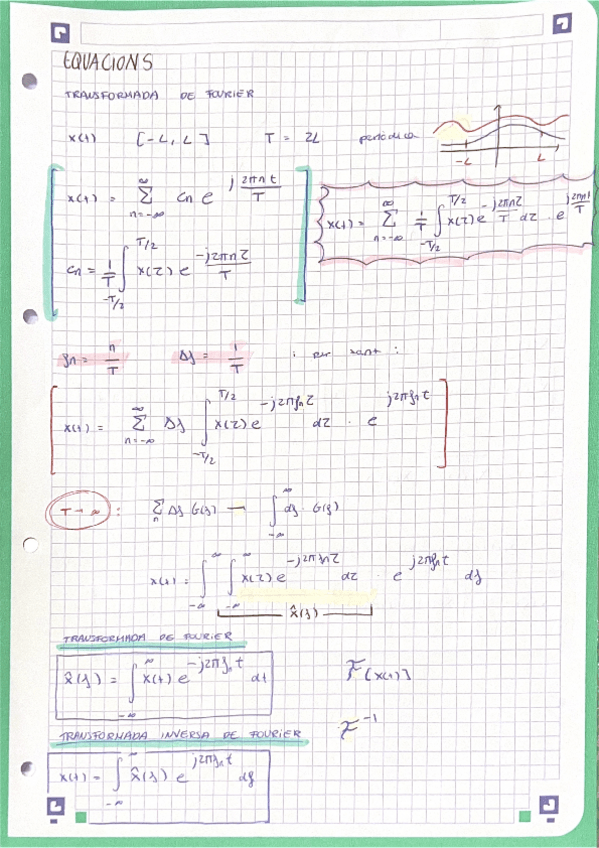 EQUACIONS
TRANSFORMADA DE FOURIER
x(t) [-L, L] T = 2L periòdica
-L L
x(t) = ∑_{n=-∞}^{∞} cn e^{j 2πnt/T}
cn = 1/T ∫_{-T/2}^{T/2} x(τ) e^{-j2πnτ/T}
x(t) = ∑_{n=-∞}^{∞} 1/T ∫_{-T/2}^{T/2} x(τ) e^{-j2πnτ/T} dτ · e^{j2πnt/T}
fn = n/T Δf = 1/T i per tant:
x(t) = ∑_{n=-∞}^{∞} Δf ∫_{-T/2}^{T/2} x(τ) e^{-j2πfnτ} dτ · e^{j2πfnt}
T → ∞ : ∑_n Δf G(f) — ∫_{-∞}^{∞} df · G(f)
x(t) = ∫_{-∞}^{∞} ∫_{-∞}^{∞} x(τ) e^{-j2πfnτ} dτ · e^{j2πfnt} df
x̂(f)
TRANSFORMADA DE FOURIER
x̂(f) = ∫_{-∞}^{∞} x(t) e^{-j2πfnt} dt
F[x(t)]
F^{-1}
TRANSFORMADA INVERSA DE FOURIER
x(t) = ∫_{-∞}^{∞} x̂(f) e^{j2πfnt} df